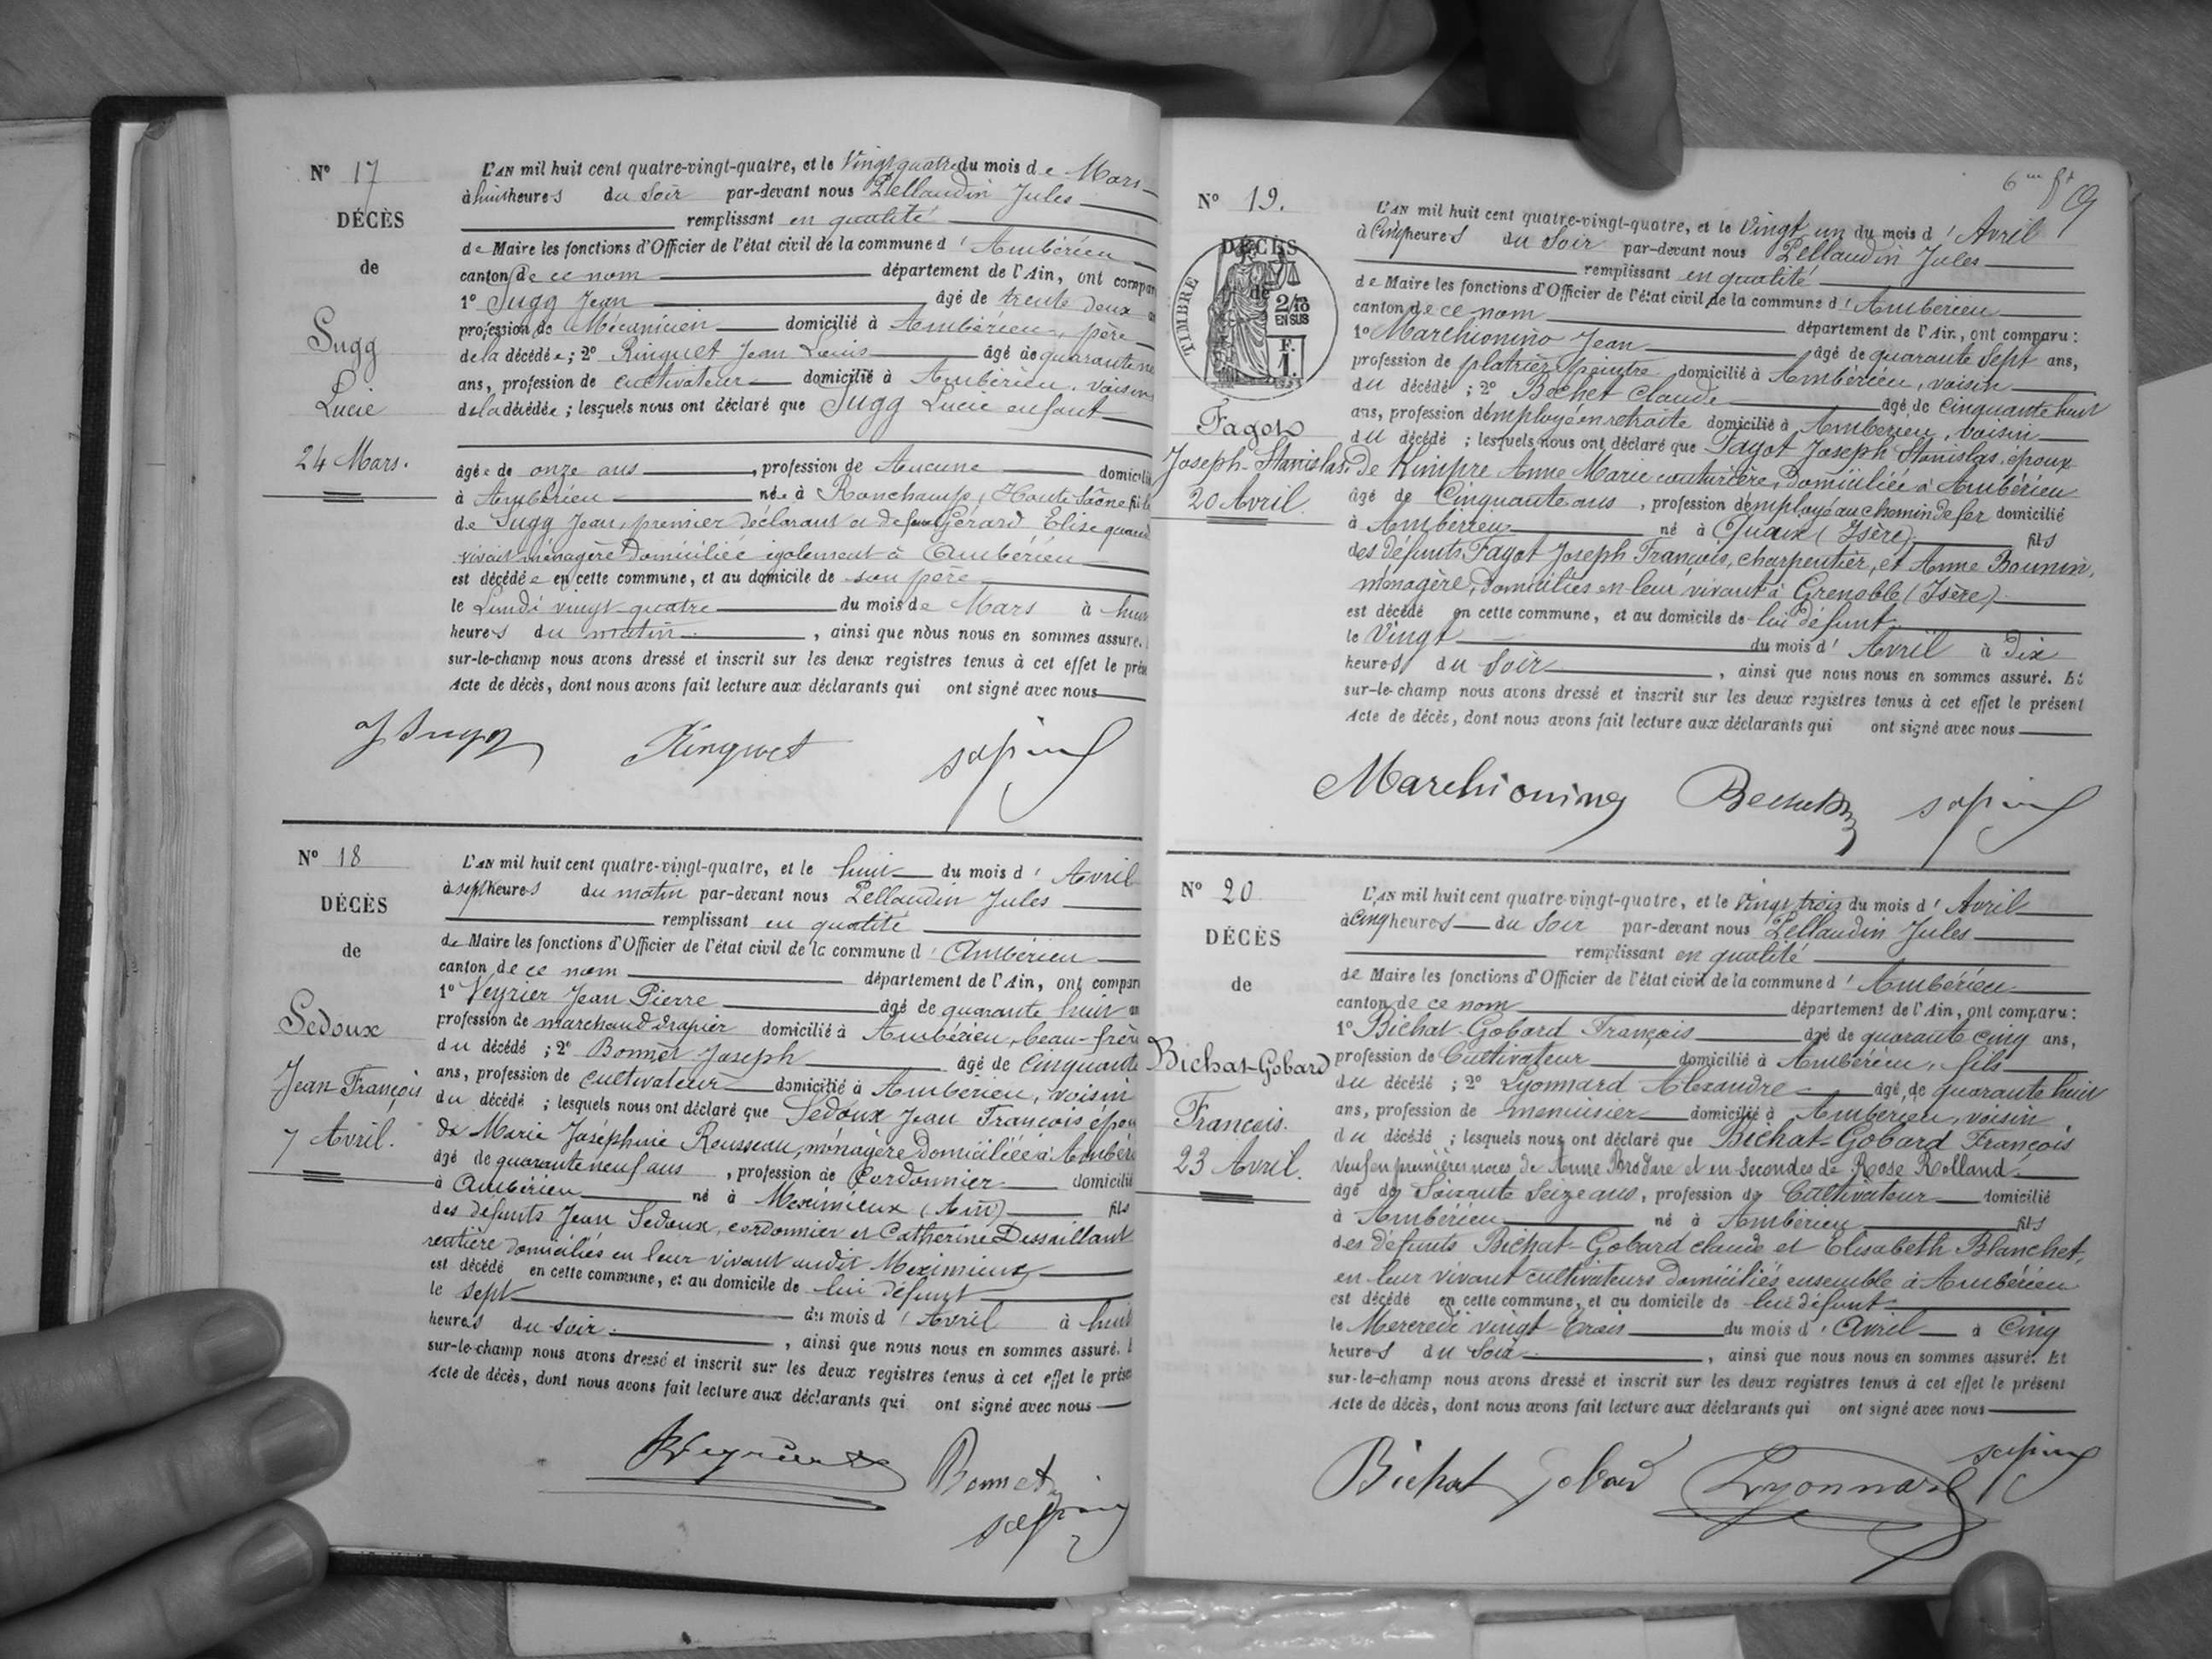 N° 17
DÉCÈS
de
Sugg
Lucie
24 Mars.
L'AN mil huit cent quatre-vingt-quatre, et le Vingt quatre du mois de Mars
à huit heures du Soir par-devant nous Pellaudin Jules
remplissant en qualité
de Maire les fonctions d'Officier de l'état civil de la commune d'Ambérieu
canton de ce nom département de l'Ain, ont compar
1° Sugg Jean âgé de trente deux
profession de Mécanicien domicilié à Ambérieu, père
de la décédée; 2° Ringuet Jean Louis âgé de quarante
ans, profession de cultivateur domicilié à Ambérieu, voisin
de la décédée; lesquels nous ont déclaré que Sugg Lucie enfant
âgée de onze ans, profession de Aucune domicili
à Ambérieu née à Ronchamp, Haute Saône fille
de Sugg Jean, premier déclarant et de feue Gérard Elise quand
vivait ménagère domiciliée également à Ambérieu
est décédée en cette commune, et au domicile de son père
le Lundi vingt-quatre du mois de Mars à huit
heures du matin, ainsi que nous nous en sommes assuré.
sur-le-champ nous avons dressé et inscrit sur les deux registres tenus à cet effet le prés
Acte de décès, dont nous avons fait lecture aux déclarants qui ont signé avec nous
J Sugg Ringuet
N° 18
DÉCÈS
de
Sedoux
Jean François
7 Avril.
L'AN mil huit cent quatre-vingt-quatre, et le huit du mois d'Avril
à sept heures du matin par-devant nous Pellaudin Jules
remplissant en qualité
de Maire les fonctions d'Officier de l'état civil de la commune d'Ambérieu
canton de ce nom département de l'Ain, ont compar
1° Veyrier Jean Pierre âgé de quarante huit an
profession de marchand drapier domicilié à Ambérieu, beau-frère
du décédé; 2° Bonnet Joseph âgé de Cinquante
ans, profession de cultivateur domicilié à Ambérieu, voisin
du décédé; lesquels nous ont déclaré que Sedoux Jean François épou
de Marie Joséphine Rousseau, ménagère domiciliée à Ambéri
âgé de quarante neuf ans, profession de Cordonnier domicilié
à Ambérieu né à Meximieux (Ain) fils
des défunts Jean Sedoux, cordonnier et Catherine Dessaillant
rentière domiciliés en leur vivant audit Meximieux
est décédé en cette commune, et au domicile de lui défunt
le Sept du mois d'Avril à huit
heures du soir, ainsi que nous nous en sommes assuré.
sur-le-champ nous avons dressé et inscrit sur les deux registres tenus à cet effet le prése
Acte de décès, dont nous avons fait lecture aux déclarants qui ont signé avec nous
Bonnet
6me ft
N° 19.
DÉCÈS
de
TIMBRE
2/10
EN SUS
F.
1.
Fagot
Joseph-Stanislas.
20 Avril.
L'AN mil huit cent quatre-vingt-quatre, et le Vingt un du mois d'Avril
à Cinq heures du Soir par-devant nous Pellaudin Jules
remplissant en qualité
de Maire les fonctions d'Officier de l'état civil de la commune d'Ambérieu
canton de ce nom département de l'Ain, ont comparu:
1° Marchionino Jean âgé de quarante Sept ans,
profession de platrier peintre domicilié à Ambérieu, voisin
du décédé; 2° Bechet Claude âgé de Cinquante huit
ans, profession d'employé en retraite domicilié à Ambérieu, voisin
du décédé; lesquels nous ont déclaré que Fagot Joseph Stanislas, époux
de Kimpre Anne Marie couturière, domiciliée à Ambérieu
âgé de Cinquante ans, profession d'employé au chemin de fer domicilié
à Ambérieu né à Quaix (Isère) fils
des défunts Fagot Joseph François, charpentier, et Anne Bounin,
ménagère, domiciliés en leur vivant à Grenoble (Isère)
est décédé en cette commune, et au domicile de lui défunt
le Vingt du mois d'Avril à Dix
heures du Soir, ainsi que nous nous en sommes assuré. Et
sur-le-champ nous avons dressé et inscrit sur les deux registres tenus à cet effet le présent
Acte de décès, dont nous avons fait lecture aux déclarants qui ont signé avec nous
Marchionino Bechet
N° 20
DÉCÈS
de
Bichat-Gobard
François.
23 Avril.
L'AN mil huit cent quatre-vingt-quatre, et le vingt trois du mois d'Avril
à Cinq heures du Soir par-devant nous Pellaudin Jules
remplissant en qualité
de Maire les fonctions d'Officier de l'état civil de la commune d'Ambérieu
canton de ce nom département de l'Ain, ont comparu:
1° Bichat-Gobard François âgé de quarante cinq ans,
profession de Cultivateur domicilié à Ambérieu, fils
du décédé; 2° Lyonnard Alexandre âgé de quarante huit
ans, profession de menuisier domicilié à Ambérieu, voisin
du décédé; lesquels nous ont déclaré que Bichat-Gobard François
veuf en premières noces de Anne Brodure et en secondes de Rose Rolland
âgé de Soixante Seize ans, profession de Cultivateur domicilié
à Ambérieu né à Ambérieu fils
des défunts Bichat-Gobard Claude et Elisabeth Blanchet,
en leur vivant cultivateurs domiciliés ensemble à Ambérieu
est décédé en cette commune, et au domicile de lui défunt
le Mercredi vingt-trois du mois d'Avril à Cinq
heures du Soir, ainsi que nous nous en sommes assuré. Et
sur-le-champ nous avons dressé et inscrit sur les deux registres tenus à cet effet le présent
Acte de décès, dont nous avons fait lecture aux déclarants qui ont signé avec nous
Bichat Gobard Lyonnard